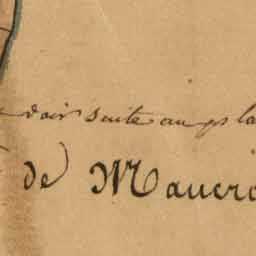 voir suite au pla
de Maucro